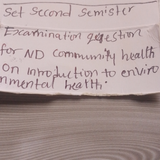 Set Second Semister
Examination question
for ND community health
on introduction to enviro
nmental health.